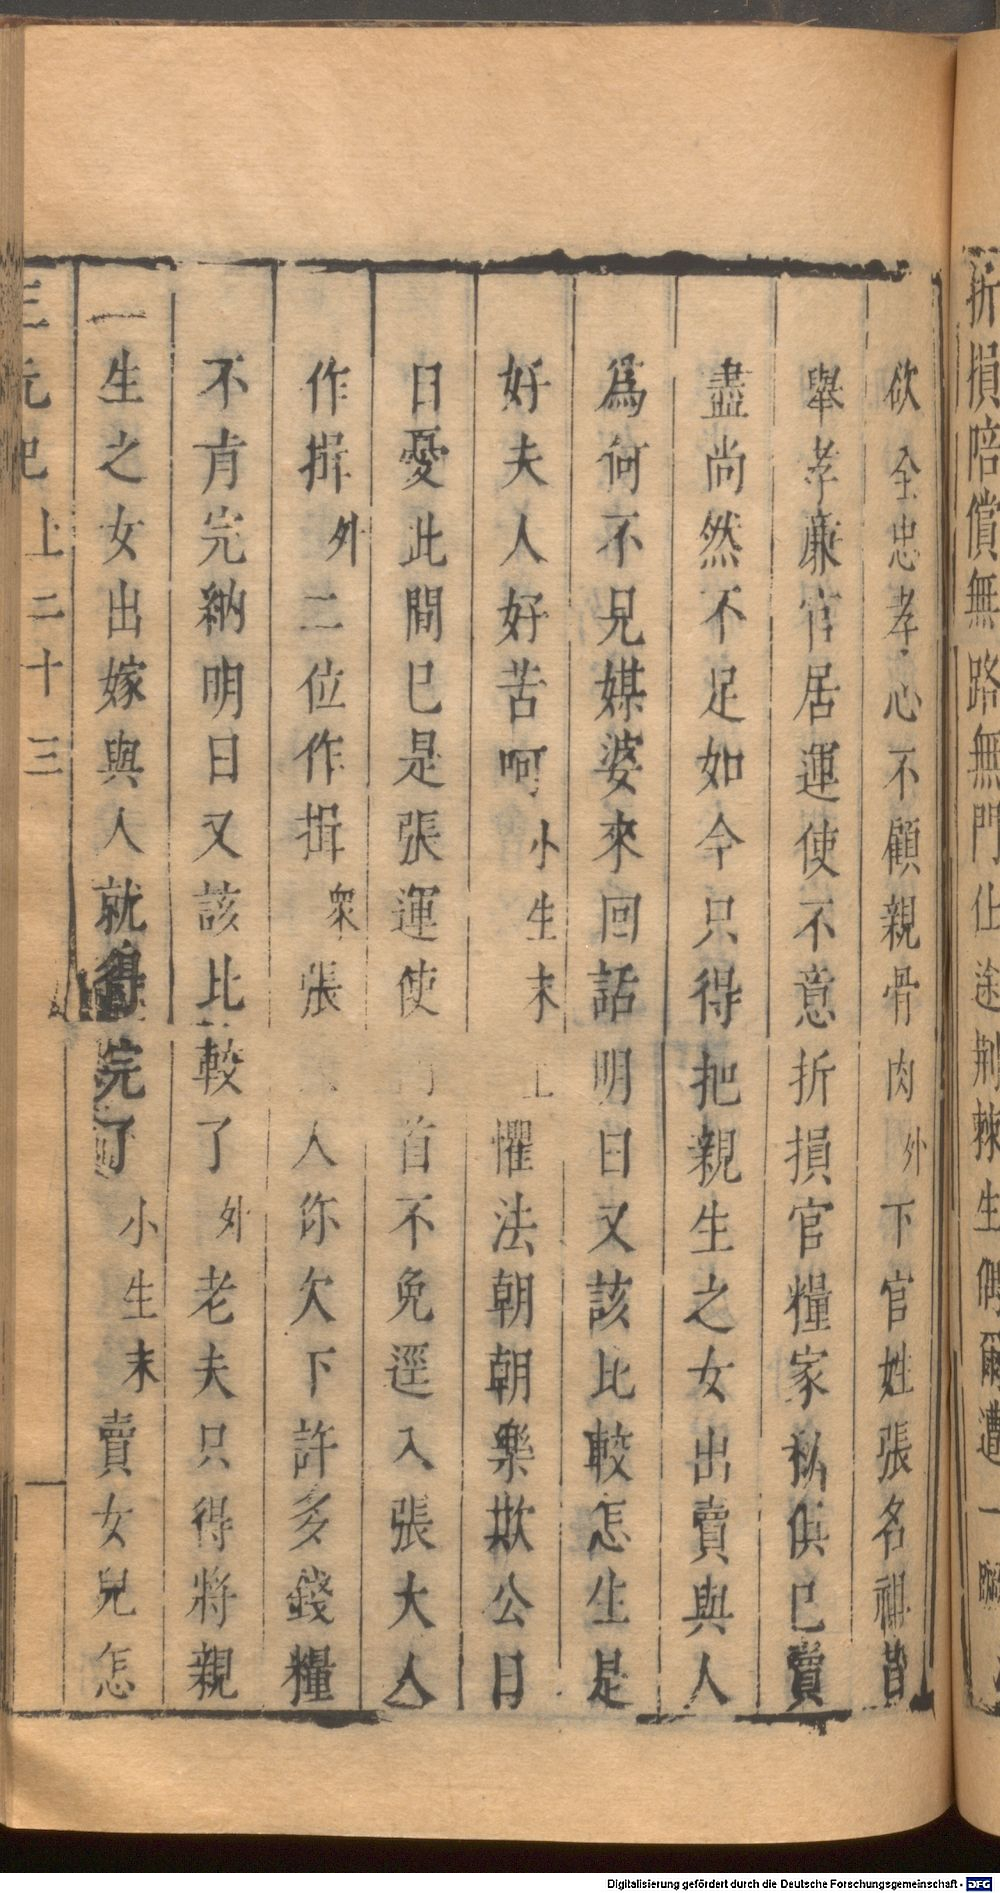 折損陪償無路無門仕途荆棘生偶爾遭一
欲全忠孝心不顧親骨肉外下官姓張名祖昔
舉孝廉官居運使不意折損官糧家私俱已賣
盡尚然不足如今只得把親生之女出賣與人
爲何不見媒婆來回話明日又該比較怎生是
好夫人好苦呵小生末上懼法朝朝樂欺公日
日憂此間已是張運使門首不免逕入張大人
作揖外二位作揖衆張人你欠下許多錢糧
不肯完納明日又該比較了外老夫只得將親
生之女出嫁與人就得完了小生末賣女兒怎
三元記 上二十三
Digitalisierung gefördert durch die Deutsche Forschungsgemeinschaft - DFG